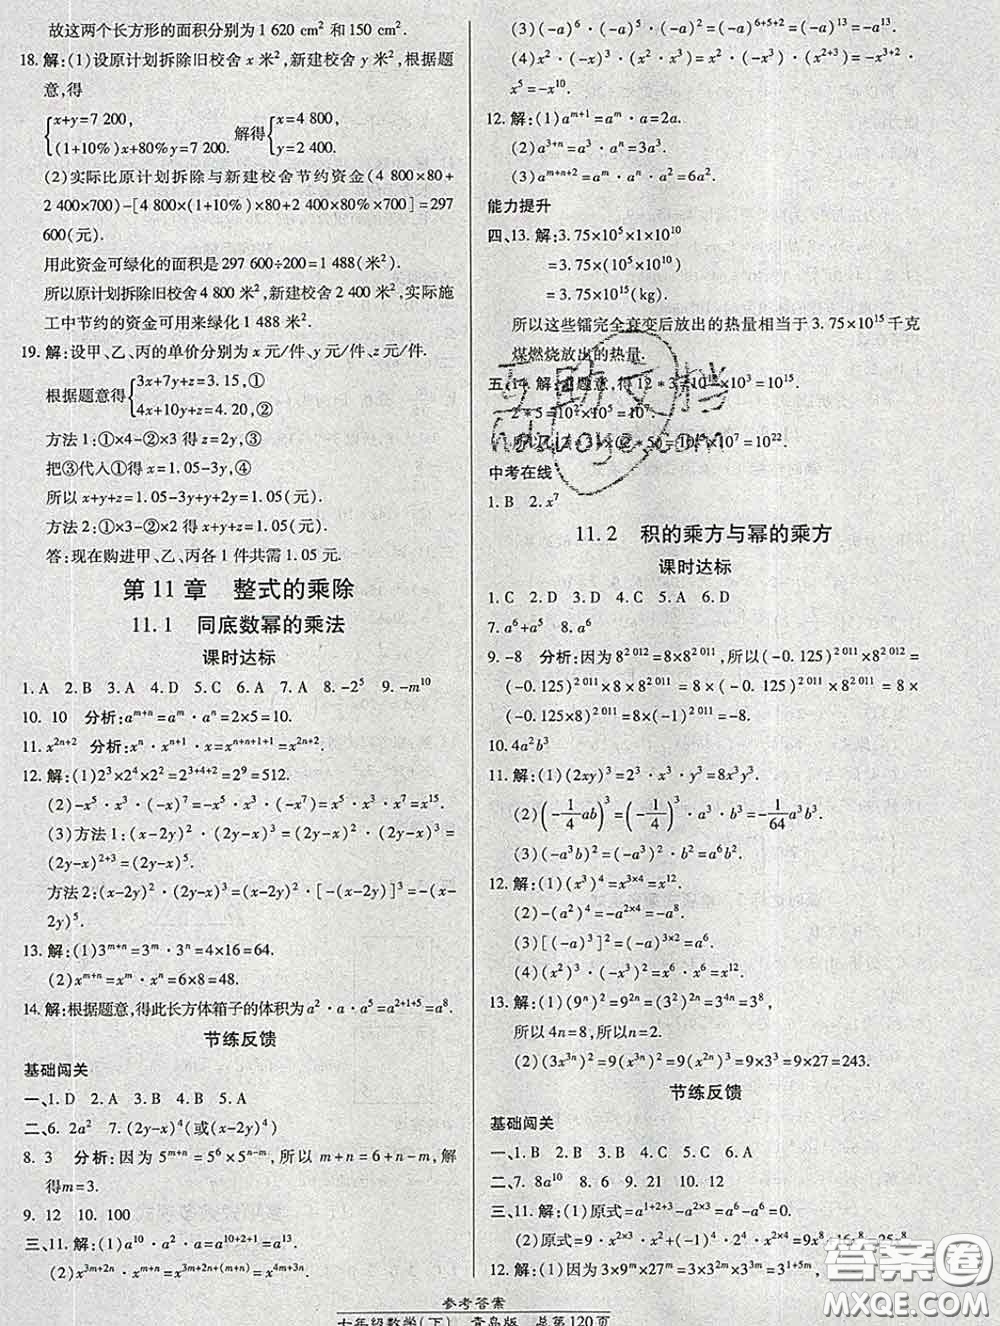 故这两个长方形的面积分别为1 620 cm²和150 cm².
18. 解:(1)设原计划拆除旧校舍x米²,新建校舍y米²,根据题
意,得
{x+y=7 200, (1+10%)x+80%y=7 200. 解得{x=4 800, y=2 400.
(2)实际比原计划拆除与新建校舍节约资金(4 800×80+
2 400×700)-[4 800×(1+10%)×80+2 400×80%×700]=297
600(元).
用此资金可绿化的面积是297 600÷200=1 488(米²).
所以原计划拆除旧校舍4 800米²,新建校舍2 400米²,实际施
工中节约的资金可用来绿化1 488米².
19. 解:设甲、乙、丙的单价分别为x元/件、y元/件、z元/件.
根据题意得{3x+7y+z=3.15,① 4x+10y+z=4.20,②
方法1:①×4-②×3得z=1.05-3y,③
把③代入①得x=1.05-3y+4y,④
所以x+y+z=1.05(元).
方法2:①×3-②×2得x+y+z=1.05(元).
答:现在购进甲、乙、丙各1件共需1.05元.
第11章 整式的乘除
11.1 同底数幂的乘法
课时达标
1. A 2. B 3. A 4. D 5. C 6. A 7. A 8. -2⁵ 9. -m¹⁰
10. 10 分析:aᵐ⁺ⁿ=aᵐ·aⁿ=2×5=10.
11. x²ⁿ⁺² 分析:xⁿ·xⁿ⁺¹·x=xⁿ⁺ⁿ⁺¹⁺¹=x²ⁿ⁺².
12. 解:(1)2³×2⁴×2²=2³⁺⁴⁺²=2⁹=512.
(2)-x⁵·x³·(-x⁷)=-x⁵·x³·(-x⁷)=x⁵·x³·x⁷=x¹⁵.
(3)方法1:(x-2y)²·(2y-x)³=(2y-x)²·(2y-x)³=
(2y-x)²⁺³=(2y-x)⁵.
方法2:(x-2y)²·(2y-x)³=(x-2y)²·[-(x-2y)³]=-(x-
2y)⁵.
13. 解:(1)3ᵐ⁺ⁿ=3ᵐ·3ⁿ=4×16=64.
(2)xᵐ⁺ⁿ=xᵐ·xⁿ=6×8=48.
14. 解:根据题意,得此长方体箱子的体积为a²·a·a⁵=a²⁺¹⁺⁵=a⁸.
节练反馈
基础闯关
一、1. D 2. A 3. A 4. B 5. A
二、6. 2a² 7. (2y-x)⁴(或(x-2y)⁴)
8. 3 分析:因为5ᵐ⁺ⁿ=5⁶×5ⁿ⁻ᵐ,所以m+n=6+n-m,解
得m=3.
9. 12 10. 100
三、11. 解:(1)a¹⁰·a²·a=a¹⁰⁺²⁺¹=a¹³.
(2)x³ᵐ⁺²ⁿ·xᵐ⁺ⁿ=x³ᵐ⁺²ⁿ⁺⁽ᵐ⁺ⁿ⁾=x⁴ᵐ⁺³ⁿ.
(3)(-a)⁶·(-a)⁵·(-a)²=(-a)⁶⁺⁵⁺²=(-a)¹³=-a¹³.
(4)x²·(-x)³·(x²·x³)=x²·(-x)³·(x²⁺³)=-x⁵·
x⁵=-x¹⁰.
12. 解:(1)aᵐ⁺¹=aᵐ·a=2a.
(2)a³⁺ⁿ=a³·aⁿ=3a³.
(3)aᵐ⁺ⁿ⁺²=aᵐ·aⁿ·a²=6a².
能力提升
四、13. 解:3.75×10⁵×1×10¹⁰
=3.75×(10⁵×10¹⁰)
=3.75×10¹⁵(kg).
所以这些镭完全衰变后放出的热量相当于3.75×10¹⁵千克
煤燃烧放出的热量.
五、14. 解:由题意,得12*3=10¹²×10³=10¹⁵.
2*5=10²×10⁵=10⁷.
=10¹⁵×10⁷=10²².
中考在线
1. B 2. x⁷
11.2 积的乘方与幂的乘方
课时达标
1. C 2. D 3. D 4. C 5. A 6. D
7. a⁶+a⁵ 8. a⁶
9. -8 分析:因为8²⁰¹²=8×8²⁰¹¹,所以(-0.125)²⁰¹¹×8²⁰¹²=
(-0.125)²⁰¹¹×8×8²⁰¹¹=8×(-0.125)²⁰¹¹×8²⁰¹¹=8×
(-0.125×8)²⁰¹¹=8×(-1)²⁰¹¹=-8.
10. 4a²b³
11. 解:(1)(2xy)³=2³·x³·y³=8x³y³.
(2)(-1/4 ab)³=(-1/4)³·a³·b³=-1/64 a³b³.
(3)(-a³b)²=(-a³)²·b²=a⁶b².
12. 解:(1)(x³)⁴=x³ˣ⁴=x¹².
(2)-(a²)⁴=-a²ˣ⁴=-a⁸.
(3)[(-a)³]²=(-a)³ˣ²=a⁶.
(4)(x²)³·(-x³)²=x⁶·x⁶=x¹².
13. 解:(1)(9ⁿ)²=9²ⁿ=(3²)²ⁿ=3⁴ⁿ=3⁸,
所以4n=8,所以n=2.
(2)(3x³ⁿ)²=9(x³ⁿ)²=9(x²ⁿ)³=9×3³=9×27=243.
节练反馈
基础闯关
一、1. B 2. B 3. B 4. C 5. A 6. B
二、7. 8a¹⁰ 8. 6 9. 21 10. 12
三、11. 解:(1)原式=a¹⁺²⁺³-a²ˣ³=a⁶-a⁶=0.
(2)原式=9·x²ˣ³·(-x)²·2⁴·x²·x²ˣ²=9x⁸+16x⁸=25x⁸
12. 解:(1)3×9ᵐ×27ᵐ=3×3²ᵐ×3³ᵐ=3¹⁺⁵ᵐ.
参考答案
七年级数学(下) 青岛版 总第120页
互助文档
hdzuoye.com
答案圈
MXQE.COM